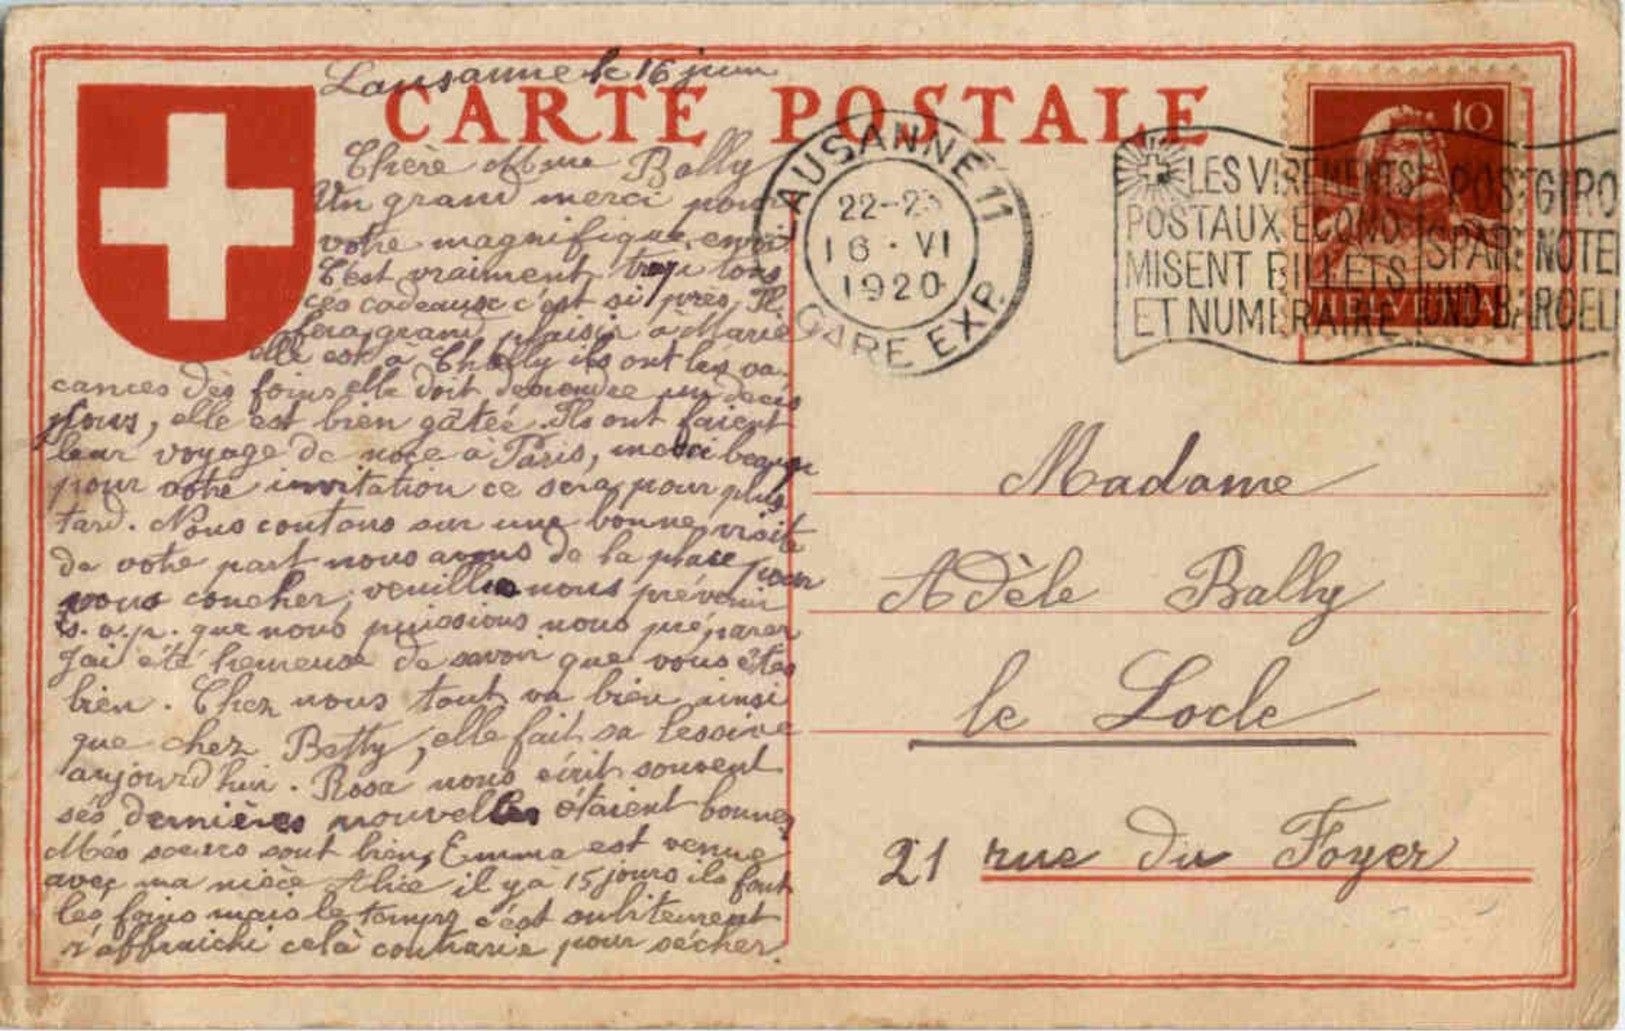 Lausanne le 16 juin
CARTE POSTALE
Chère Mme Bally
Un grand merci pour
votre magnifique envoi
C'est vraiment trop tous
ces cadeaux c'est si près, Il
fera grand plaisir à Marie
elle est à Chailly ils ont les va
cances dès foins elle doit descendre un de ces
jours, elle est bien gâtée. Ils ont faient
leur voyage de noce à Paris, merci beaucoup
pour votre invitation ce sera pour plus
tard. Nous contons sur une bonne visite
de votre part nous avons de la place pour
vous coucher, veuillez nous prévenir
s. v. p. que nous puissions nous préparer
J'ai été heureuse de savoir que vous êtes
bien. Chez nous tout va bien ainsi
que chez Betty, elle fait sa lessive
aujourd'hui. Rosa nous écrit souvent
sés dernières nouvelles étaient bonnes
Més soeurs sont bien, Emma est venue
aveç ma nièce Alice il y à 15 jours ils font
lés foins mais le temps c'ést subitement
r'affraichi celà contrarie pour sécher.
LAUSANNE 11
22-23
16 · VI
1920
GARE EXP.
10
LES VIREMENTS
POSTAUX ECONO-
MISENT BILLETS
ET NUMERAIRE
POSTGIRO
SPART NOTEN
UND BARGELD
HELVETIA
Madame
Adèle Bally
le Locle
21 rue du Foyer